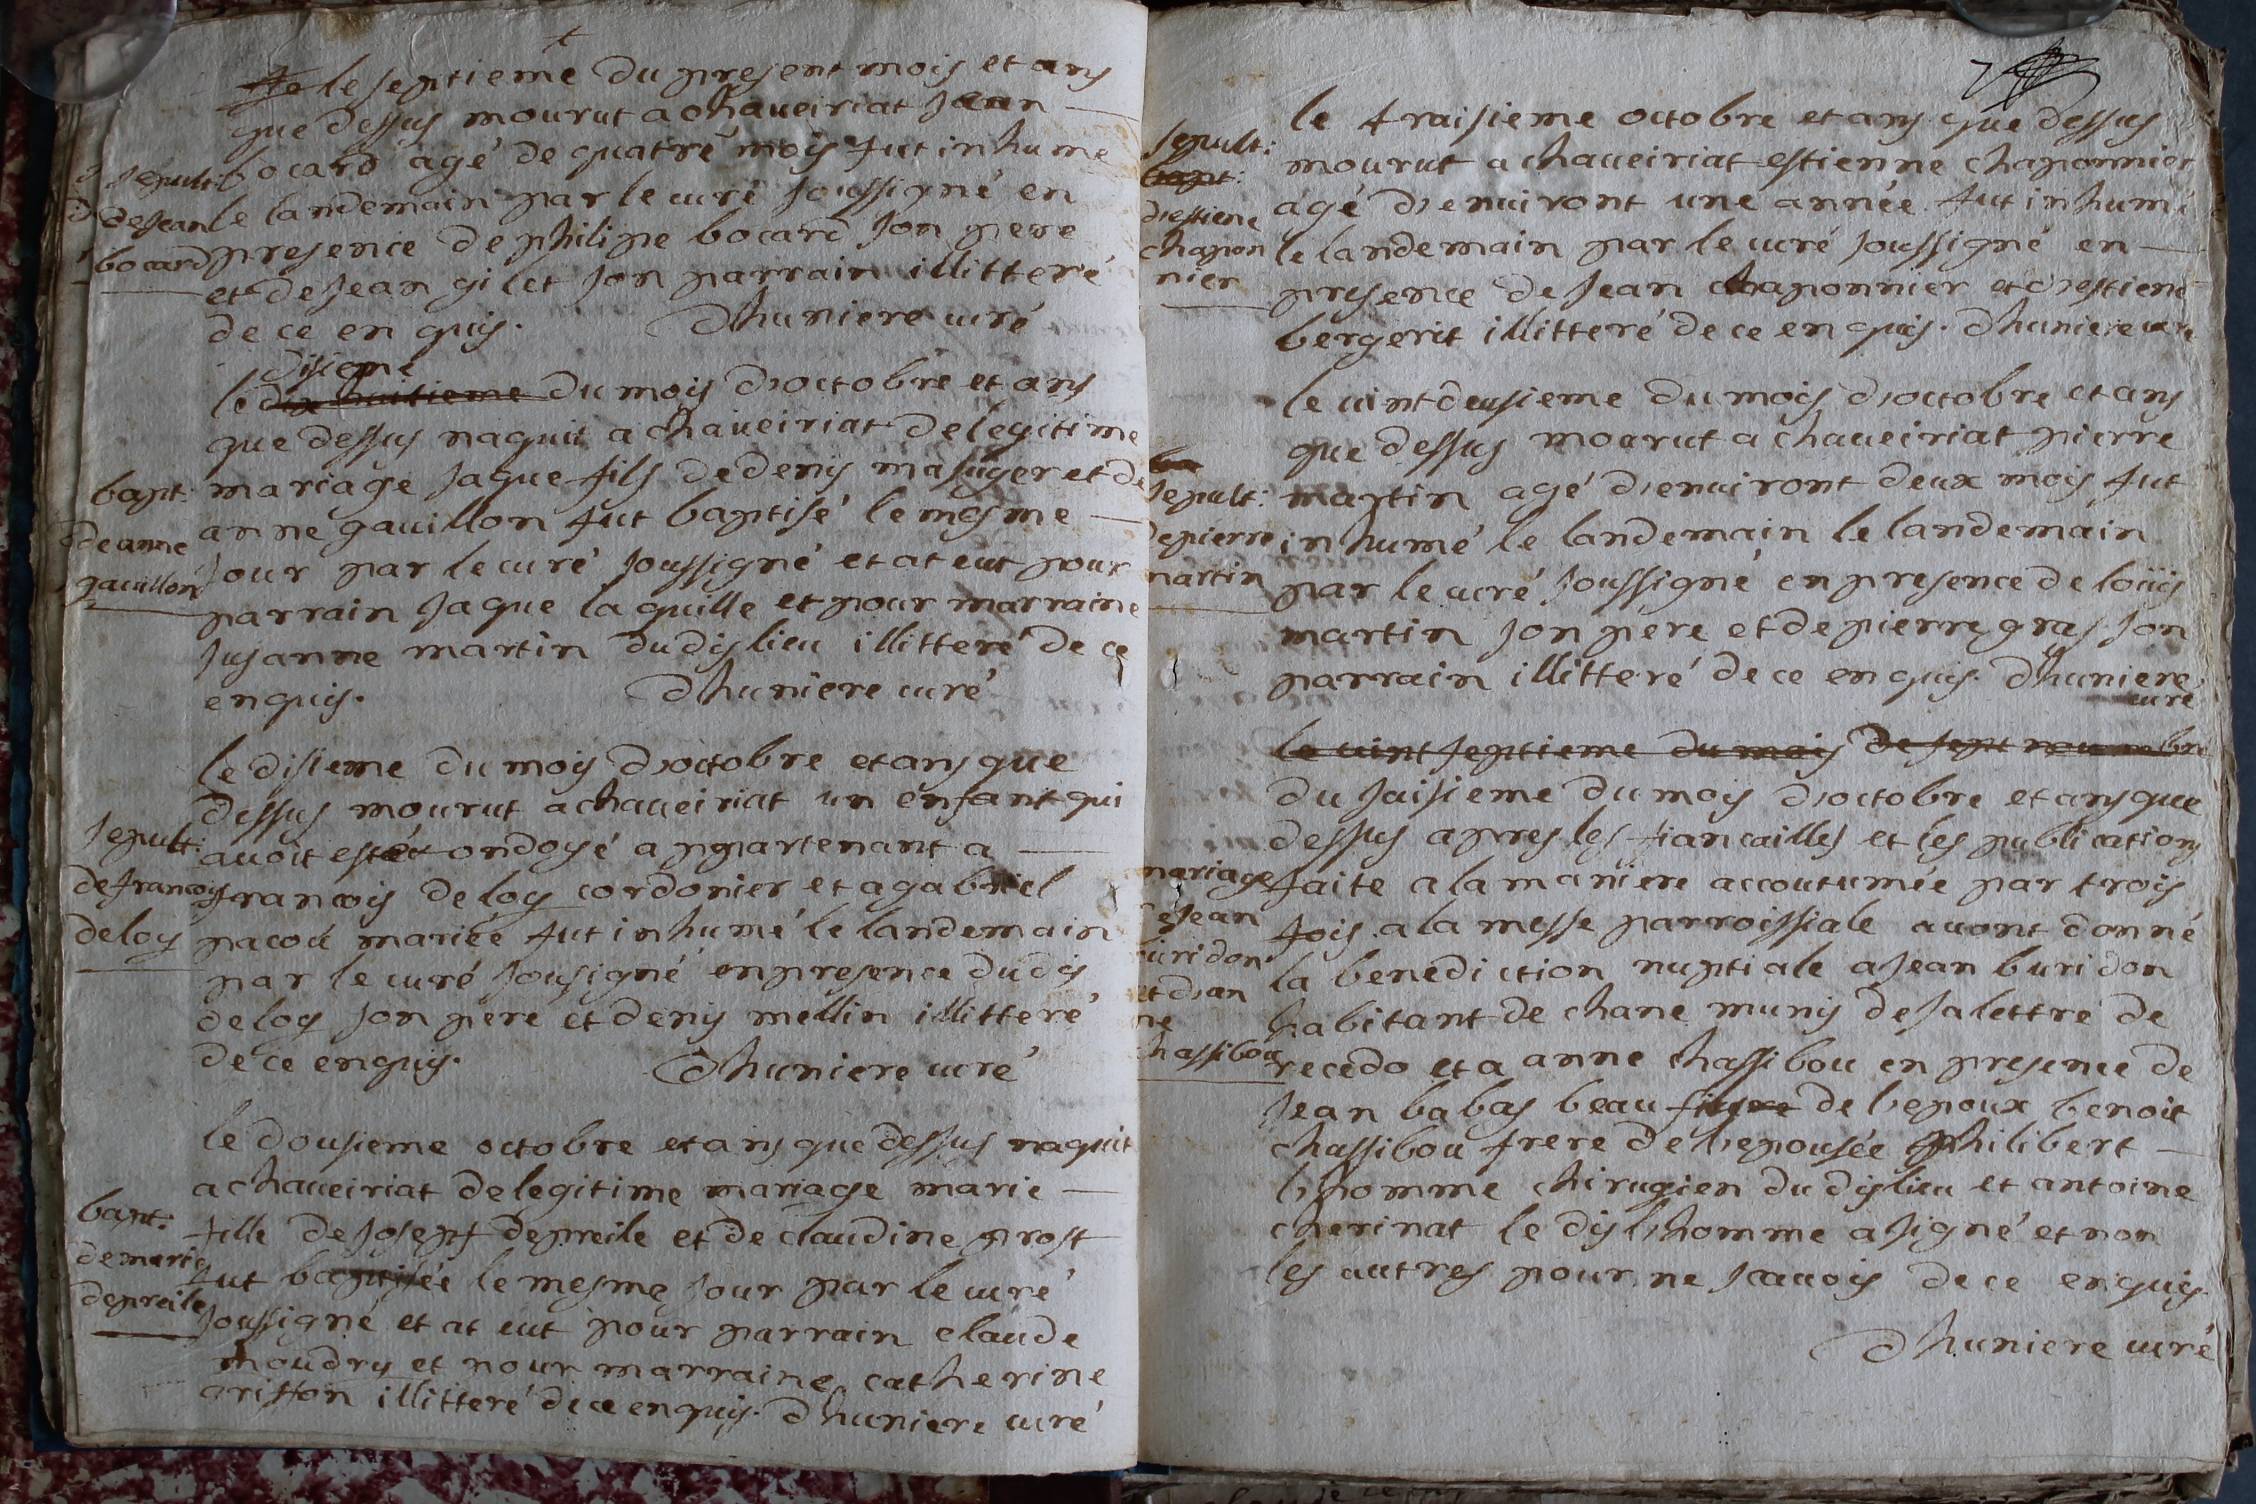 le septieme du present mois et ans
que dessus mourut a chaveiriat jean
sepult:
de jean
bocard
bocard agé de quatre mois fut inhumé
le landemain par le curé soussigné en
presence de philipe bocard son pere
et de jean gilet son parrain illitteré
de ce enquis. Dhuniere curé
disieme
le dix huitieme du mois d'octobre et ans
que dessus naquit a chaveiriat de legitime
bapt:
de anne
gauillon
mariage jaque fils de denis masuyer et de
anne gauillon fut baptisé le mesme
jour par le curé soussigné et at eut pour
parrain jaque laquille et pour marraine
susanne martin dudis lieu illitteré de ce
enquis. Dhuniere curé
le disieme du mois d'octobre et ans que
dessus mourut a chaveiriat un enfant qui
sepult:
de francois
deloy
avoit esté ondoyé appartenant a
francois deloy cordonier et a gabriel
pacou mariée fut inhumé le landemain
par le curé sousigné en presence dudis
deloy son pere et denis mellin illitteré
de ce enquis. Dhuniere curé
le dousieme octobre et ans que dessus naquit
a chaveiriat de legitime mariage marie
bapt:
de marie
depreile
fille de josepf depreile et de claudine prost
fut baptisée le mesme jour par le curé
soussigné et at eut pour parrain claude
moudry et pour marraine catherine
ariffon illitteré de ce enquis. Dhuniere curé
7
le traisieme octobre et ans que dessus
sepult:
bapt:
d'estiene
chapon
nier
mourut a chaveiriat estienne chaponnier
agé d'enuiront une année fut inhumé
le landemain par le curé soussigné en
presence de jean chaponnier et d'estiene
bergerit illitteré de ce enquis. Dhuniere curé
le vint deusieme du mois d'octobre et ans
que dessus mourut a chaveiriat pierre
sepult:
de pierre
martin
martin agé d'enuiront deux mois fut
inhumé le landemain le landemain
par le curé soussigné en presence de loüis
martin son pere et de pierre gras son
parrain illitteré de ce enquis. Dhuniere
curé
le vint septieme du mois de sept nouembre
du saisieme du mois d'octobre et ans que
dessus apres les fiancailles et les publications
mariage
de jean
buridon
et d'an
ne
chassibou
faite a la maniere accoutumée par trois
fois a la messe parroissiale avont donné
la benediction nuptiale a jean buridon
habitant de chane munis de sa lettre de
recedo et a anne chassibou en presence de
jean babas beau frere de l'epoux benoit
chassibou frere de l'epousée philibert
l'homme chirugien dudis lieu et antoine
cherinat le dis l'homme a signé et non
les autres pour ne scavois de ce enquis.
Dhuniere curé